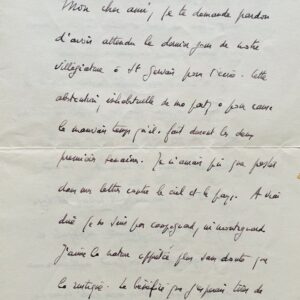 Mon cher ami, je te demande pardon
d'avoir attendu le dernier jour de notre
villégiature à St Gervais pour t'écrire. Cette
abstention, inhabituelle de ma part, a pour cause
le mauvais temps qu'il a fait durant les deux
premières semaines. Je n'aurais pu que pester
dans une lettre contre le ciel et le pays. A vrai
dire je ne suis pas campagnard, ni montagnard
J'aime la nature apprêtée plus sans doute que
la rustique. Le bénéfice que j'espérais tirer de